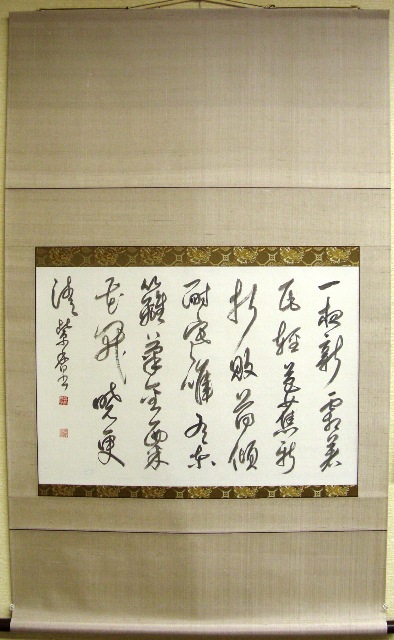 一夜新霜著
瓦軽芭蕉新
折敗荷傾
耐寒唯有東
籬菊金粟
花開暁更
清 紫香書